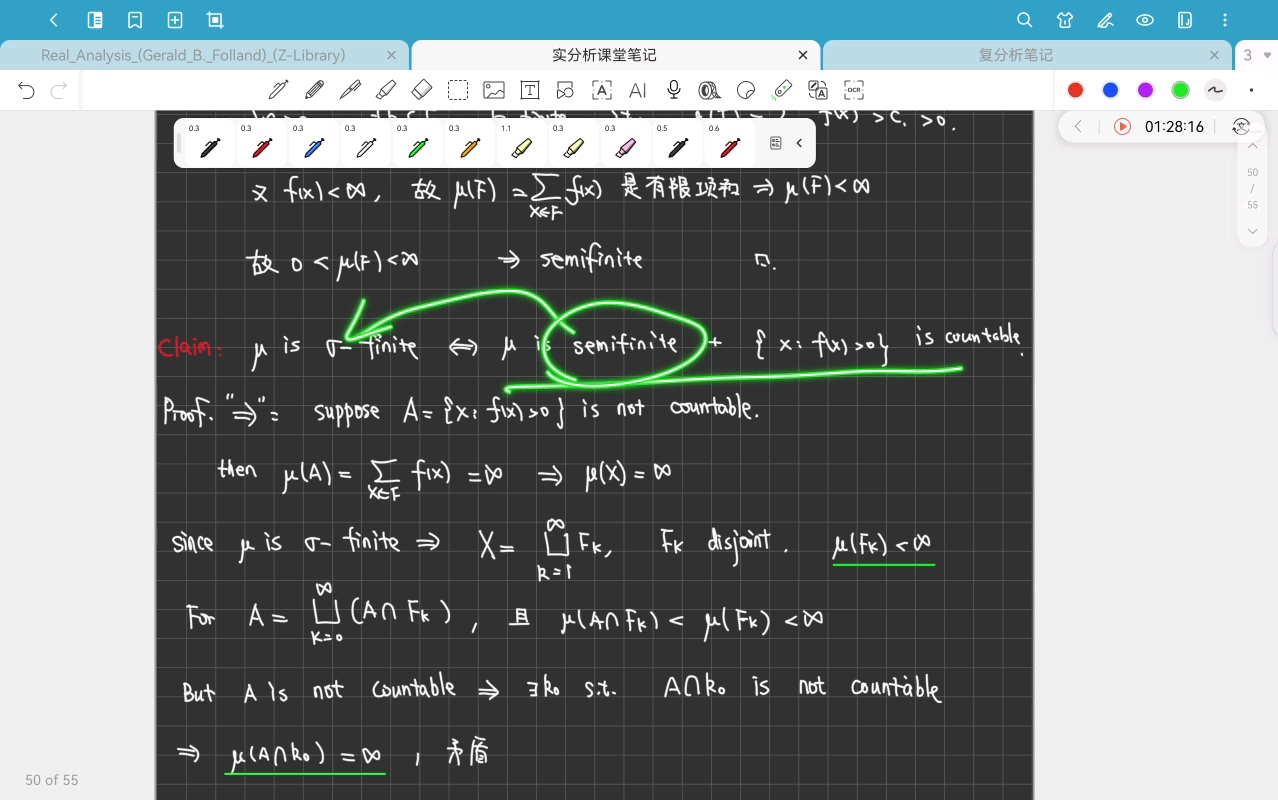 Real_Analysis_(Gerald_B._Folland)_(Z-Library)
实分析课堂笔记
复分析笔记
3
AI
OCR
f(x) > c. > 0.
01:28:16
0.3 0.3 0.3 0.3 0.3 0.3 1.1 0.3 0.3 0.5 0.6
50
/
55
又 f(x) < ∞, 故 μ(F) = ∑_{x∈F} f(x) 是有限项和 ⇒ μ(F) < ∞
故 0 < μ(F) < ∞ ⇒ semifinite □.
Claim: μ is σ- finite ⇔ μ is semifinite + { x: f(x) > 0 } is countable.
Proof. "⇒": suppose A = {x: f(x) > 0 } is not countable.
then μ(A) = ∑_{x∈F} f(x) = ∞ ⇒ μ(X) = ∞
since μ is σ- finite ⇒ X = ⊔_{k=1}^{∞} Fk, Fk disjoint. μ(Fk) < ∞
For A = ⊔_{k=0}^{∞} (A∩Fk), 且 μ(A∩Fk) < μ(Fk) < ∞
But A is not countable ⇒ ∃k₀ s.t. A∩k₀ is not countable
⇒ μ(A∩k₀) = ∞, 矛盾
50 of 55